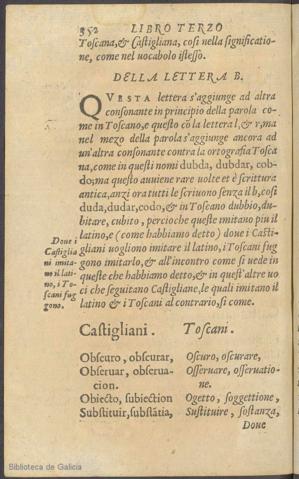 352 LIBRO TERZO
Toscana, & Castigliana, cosi nella significatio-
ne, come nel uocabolo istesso.
DELLA LETTERA B.
QVESTA lettera s'aggiunge ad altra
consonante in principio della parola co-
me in Toscano, e questo cō la lettera l, & r, ma
nel mezo della parola s'aggiunge ancora ad
un'altra consonante contra la ortografia Tosca
na, come in questi nomi dubda, dubdar, cob-
do; ma questo auuiene rare uolte et è scrittura
antica, anzi ora tutti le scriuono senza il b, cosi
duda, dudar, codo, & in Toscano dubbio, du-
bitare, cubito, percioche queste imitano piu il
latino, e (come habbiamo detto) doue i Casti-
gliani uogliono imitare il latino, i Toscani fug
gono imitarlo, & all'incontro come si uede in
queste che habbiamo detto, & in quest'altre uo
ci che seguitano Castigliane, le quali imitano il
latino & i Toscani al contrario, si come.
Doue i
Castiglia
ni imita-
no il lati-
no, i To-
scani fug
gono.
Castigliani. Toscani.
Obscuro, obscurar, Oscuro, oscurare,
Obseruar, obserua- Osseruare, osseruatio-
cion. ne.
Obiecto, subiection Ogetto, soggettione,
Substituir, substātia, Sustituire, sostanza,
Doue
Biblioteca de Galicia